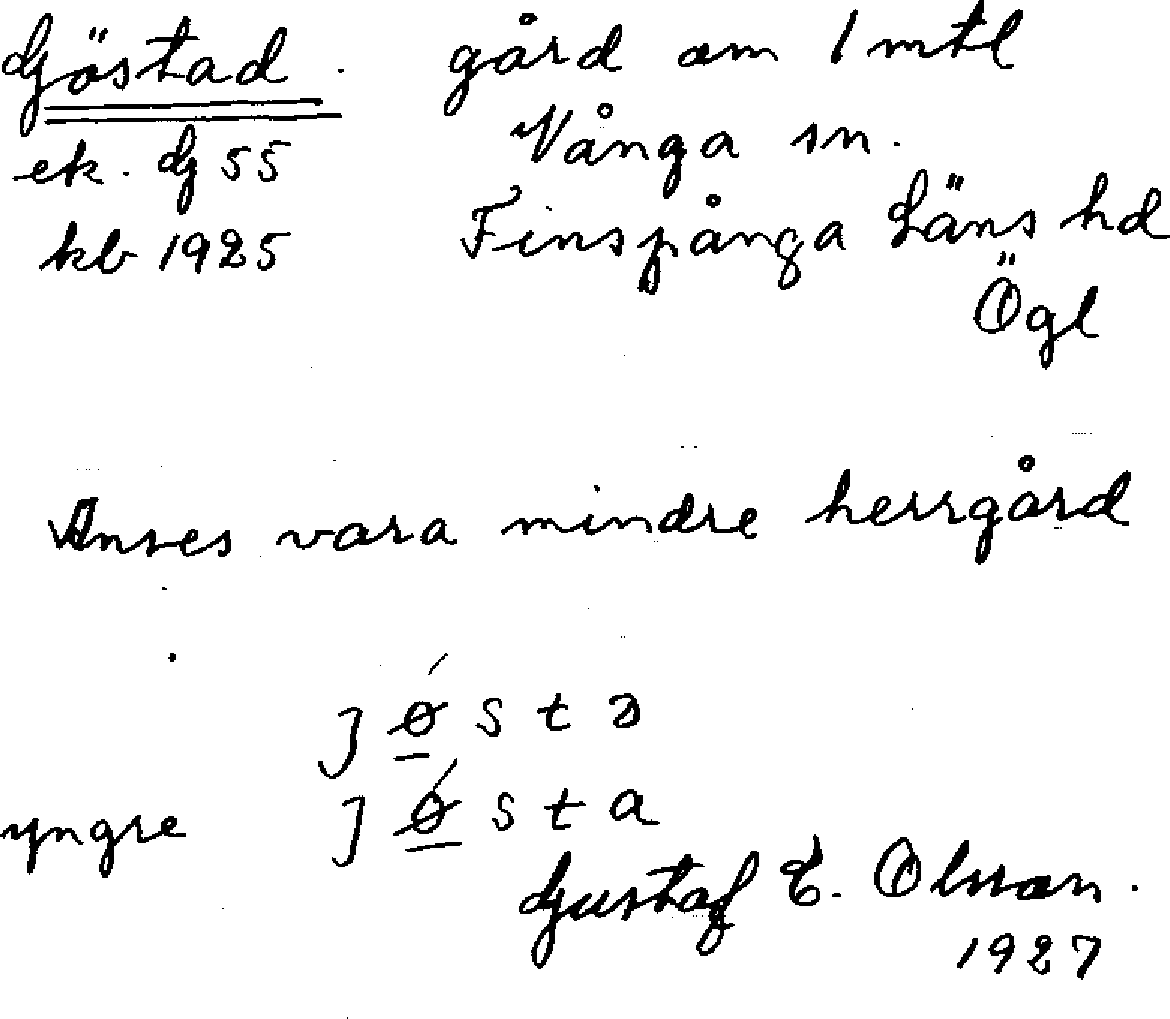 Göstad. gård om 1 mtl
ek. G 55 Vånga sn.
kb 1925 Finspånga Läns hd
Ögl
Anses vara mindre herrgård
jǿstə
yngre jǿsta
Gustaf E. Olsson.
1927